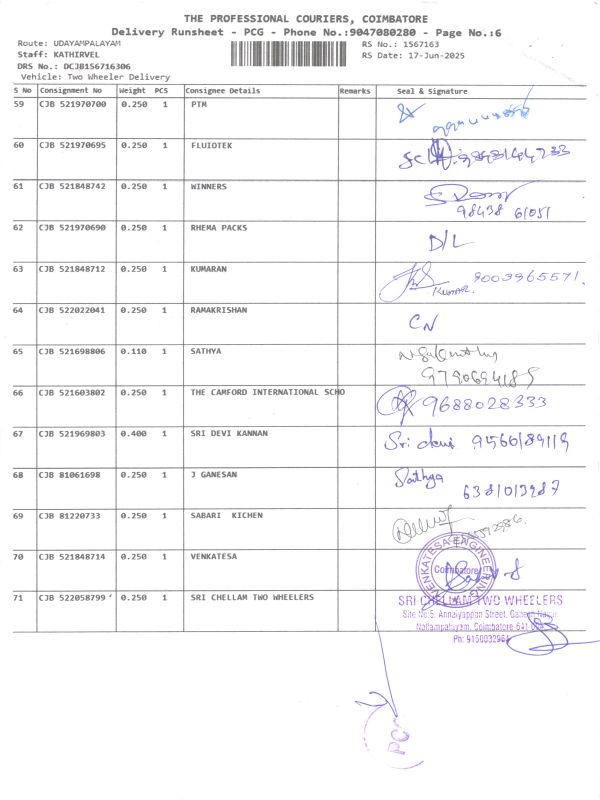 THE PROFESSIONAL COURIERS, COIMBATORE
Delivery Runsheet - PCG - Phone No.:9047080280 - Page No.:6
Route: UDAYAMPALAYAM RS No.: 1567163
Staff: KATHIRVEL RS Date: 17-Jun-2025
DRS No.: DCJB156716306
Vehicle: Two Wheeler Delivery
S No Consignment No Weight PCS Consignee Details Remarks Seal & Signature
59 CJB 521970700 0.250 1 PTM
60 CJB 521970695 0.250 1 FLUIOTEK
61 CJB 521848742 0.250 1 WINNERS
98438 61051
62 CJB 521970690 0.250 1 RHEMA PACKS D/L
63 CJB 521848712 0.250 1 KUMARAN Kumar 9003965571.
64 CJB 522022041 0.250 1 RAMAKRISHAN CN
65 CJB 521698806 0.110 1 SATHYA
9790694185
66 CJB 521603802 0.250 1 THE CAMFORD INTERNATIONAL SCHO 9688028333
67 CJB 521969803 0.400 1 SRI DEVI KANNAN Sri devi
68 CJB 81061698 0.250 1 J GANESAN Sathya
69 CJB 81220733 0.250 1 SABARI KICHEN
70 CJB 521848714 0.250 1 VENKATESA VENKATESA ENGINEERING Coimbatore
71 CJB 522058799 0.250 1 SRI CHELLAM TWO WHEELERS SRI CHELLAM TWO WHEELERS
Site No:5, Annaiyappan Street, Ganesh Nagar
Nallampalayam, Coimbatore-641
Ph: 9150032964
PC